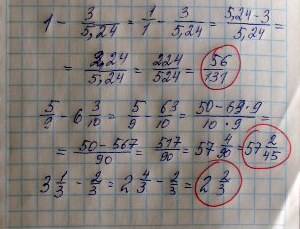 1 - 3/5,24 = 1/1 - 3/5,24 = 5,24-3/5,24 =
= 2,24/5,24 = 224/524 = 56/131
5/9 - 6 3/10 = 5/9 - 63/10 = 50-63·9/10·9 =
= 50-567/90 = 517/90 = 57 4/90 = 57 2/45
3 1/3 - 2/3 = 2 4/3 - 2/3 = 2 2/3